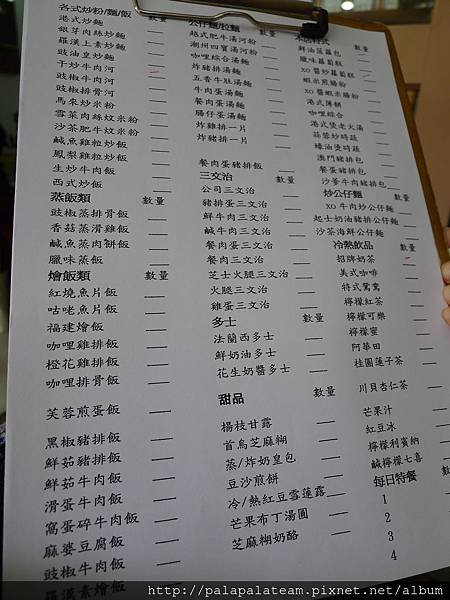 各式炒粉/麵/飯 數量
港式炒麵
銀芽肉絲炒麵
羅漢上素炒麵
豉油皇炒麵
干炒牛肉河
豉椒牛肉河
豉椒排骨河
馬來炒米粉
雪菜肉絲炆米粉
沙茶肥牛炆米粉
鹹魚雞粒炒飯
鳳梨雞粒炒飯
生炒牛肉飯
西式炒飯
蒸飯類 數量
豉椒蒸排骨飯
香菇蒸滑雞飯
鹹魚蒸肉餅飯
臘味蒸飯
燴飯類 數量
紅燒魚片飯
咕咾魚片飯
福建燴飯
咖哩雞排飯
橙花雞排飯
咖哩排骨飯
芙蓉煎蛋飯
黑椒豬排飯
鮮茹豬排飯
鮮茹牛肉飯
滑蛋牛肉飯
窩蛋碎牛肉飯
麻婆豆腐飯
豉椒牛肉飯
羅漢素燴飯
公仔麵/拉麵 數量
越式肥牛湯河粉
潮州四寶湯河粉
咖哩綜合湯麵
炸豬排湯麵
五香牛肚湯麵
牛肉蛋湯麵
餐肉蛋湯麵
腸仔蛋湯麵
炸雞排一片
炸豬排一片
餐肉蛋豬排飯
三文治 數量
公司三文治
豬排蛋三文治
鮮牛肉三文治
鹹牛肉三文治
餐肉蛋三文治
餐肉三文治
芝士火腿三文治
火腿三文治
雞蛋三文治
多士 數量
法蘭西多士
鮮奶油多士
花生奶醬多士
甜品 數量
楊枝甘露
首烏芝麻糊
蒸/炸奶皇包
豆沙煎餅
冷/熱紅豆雪蓮露
芒果布丁湯圓
芝麻糊奶酪
數量
鮮油菠蘿包
臘味蘿蔔糕
xo醬炒蘿蔔糕
蝦米煎腸粉
xo醬蝦米腸粉
港式薄餅
咖哩綜合
港式煲老火湯
蒜蓉炒時蔬
蠔油燙時蔬
澳門豬排包
餐蛋豬排包
沙爹牛肉豬排包
炒公仔麵 數量
XO牛肉炒公仔麵
起士奶油豬排公仔麵
沙茶海鮮公仔麵
冷熱飲品 數量
招牌奶茶
美式咖啡
特式鴛鴦
檸檬紅茶
檸檬可樂
檸檬蜜
阿華田
桂圓蓮子茶
川貝杏仁茶
芒果汁
紅豆冰
檸檬利賓納
鹹檸檬七喜
每日特餐 數量
1
2
3
4
http://palapalateam.pixnet.net/album